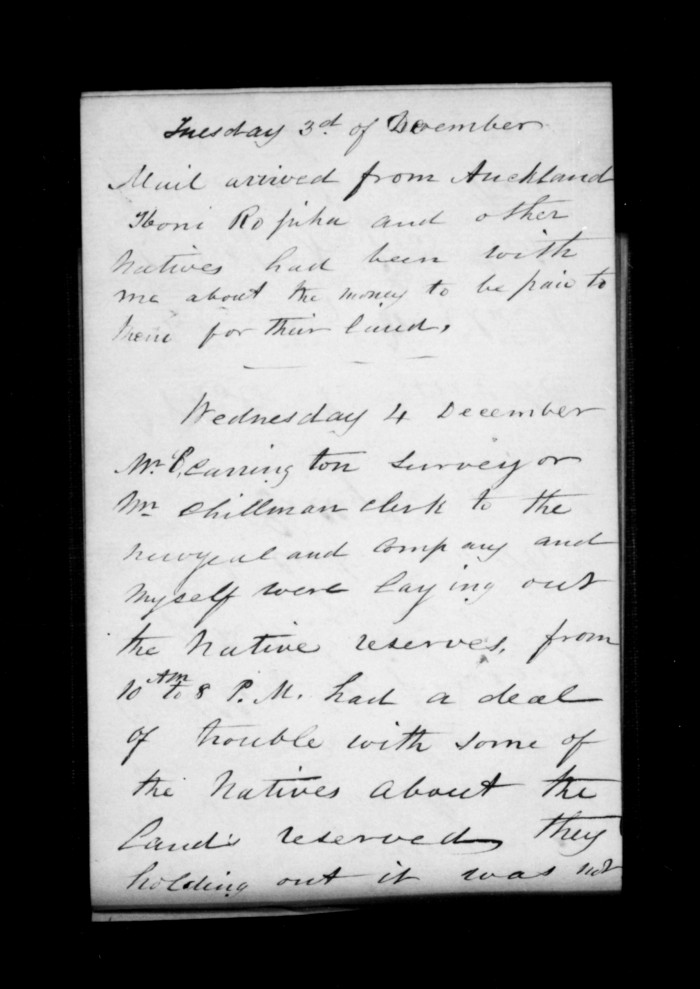 Tuesday 3d of December
Mail arrived from Auckland
Honi Ropiha and other
Natives had been with
me about the money to be paid to
them for their land.
Wednesday 4 December
Mr Carrington Surveyor
Mr Chillman clerk to the
and company and
Myself were laying out
the Native reserves, from
10 AM to 8 P.M. had a deal
of trouble with some of
the Natives about the
Lands reserved, they
holding out it was not